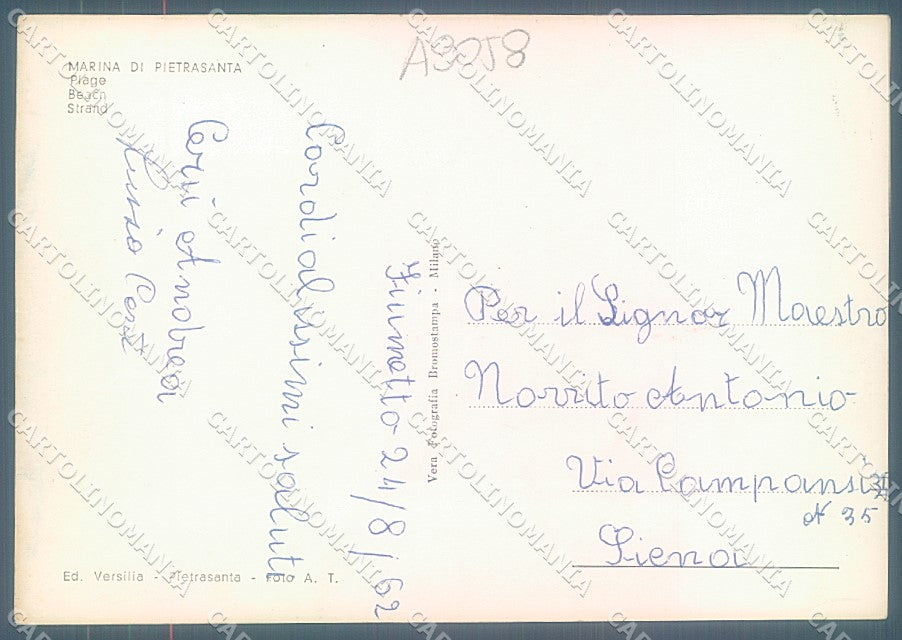 A3258
MARINA DI PIETRASANTA
Plage
Beach
Strand
Fiumetto 24/8/62
Cordialissimi saluti
Corsi Andrea
Vera Fotografia Bromostampa - Milano
Per il Signor Maestro
Antonio
Via Campansi
N 35
Siena
Ed. Versilia - Pietrasanta - Foto A. T.
CARTOLINOMANIA